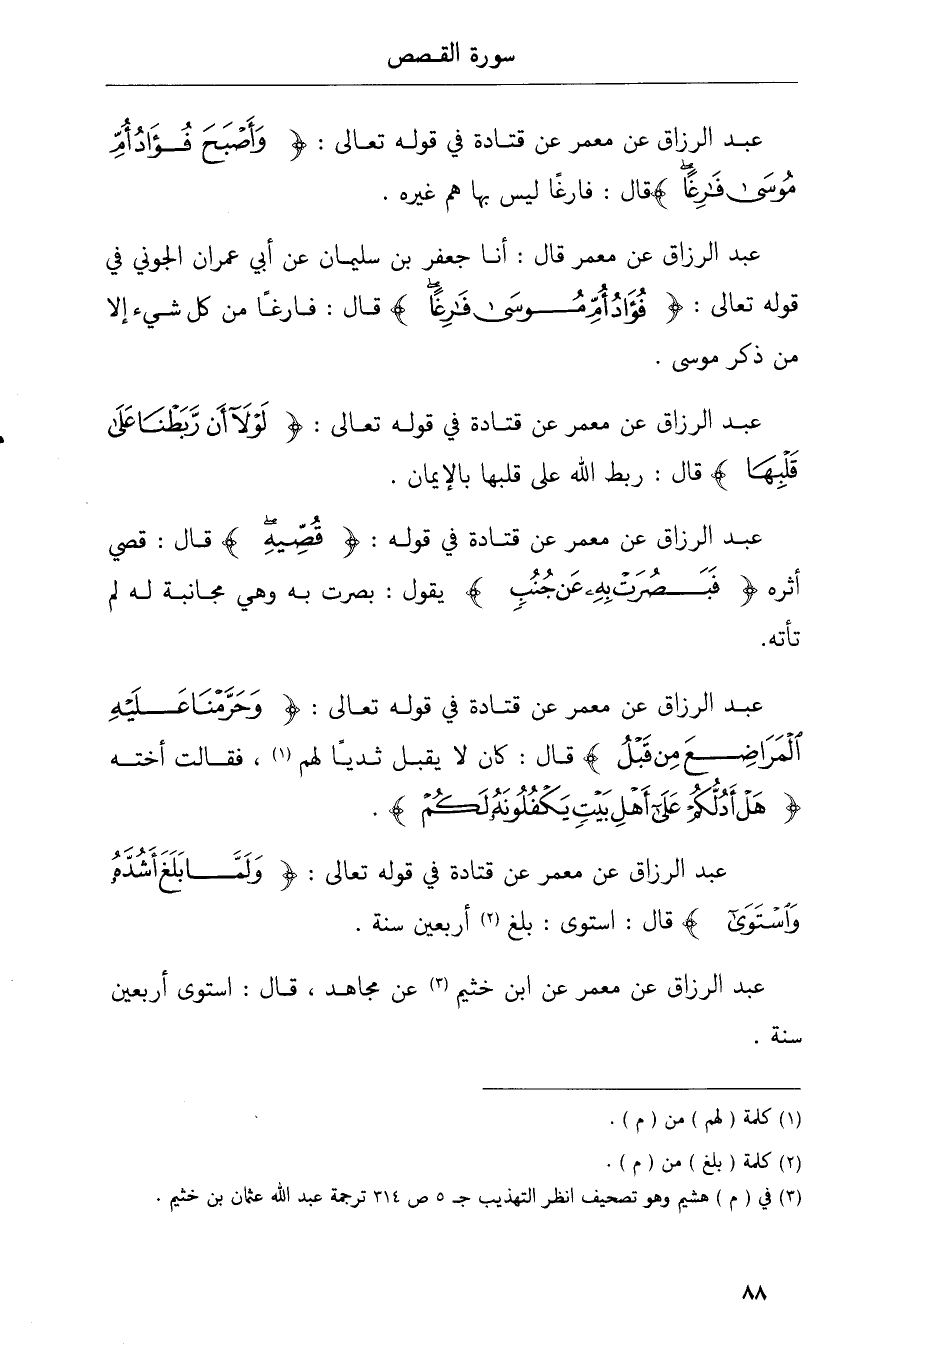 سورة القصص
عبد الرزاق عن معمر عن قتادة في قوله تعالى : ﴿ وَأَصْبَحَ فُؤَادُ أُمِّ
مُوسَىٰ فَارِغًا ﴾ قال : فارغًا ليس بها هم غيره .
عبد الرزاق عن معمر قال : أنا جعفر بن سليمان عن أبي عمران الجوني في
قوله تعالى : ﴿ فُؤَادُ أُمِّ مُوسَىٰ فَارِغًا ﴾ قال : فارغًا من كل شيء إلا
من ذكر موسى .
عبد الرزاق عن معمر عن قتادة في قوله تعالى : ﴿ لَوْلَآ أَن رَّبَطْنَا عَلَىٰ
قَلْبِهَا ﴾ قال : ربط الله على قلبها بالإيمان .
عبد الرزاق عن معمر عن قتادة في قوله : ﴿ قُصِّيهِ ﴾ قال : قصي
أثره ﴿ فَبَصُرَتْ بِهِۦ عَن جُنُبٍ ﴾ يقول : بصرت به وهي مجانبة له لم
تأته.
عبد الرزاق عن معمر عن قتادة في قوله تعالى : ﴿ وَحَرَّمْنَا عَلَيْهِ
ٱلْمَرَاضِعَ مِن قَبْلُ ﴾ قال : كان لا يقبل ثديًا لهم (١) ، فقالت أخته
﴿ هَلْ أَدُلُّكُمْ عَلَىٰٓ أَهْلِ بَيْتٍ يَكْفُلُونَهُۥ لَكُمْ ﴾ .
عبد الرزاق عن معمر عن قتادة في قوله تعالى : ﴿ وَلَمَّا بَلَغَ أَشُدَّهُۥ
وَٱسْتَوَىٰٓ ﴾ قال : استوى : بلغ (٢) أربعين سنة .
عبد الرزاق عن معمر عن ابن خثيم (٣) عن مجاهد ، قال : استوى أربعين
سنة .
(١) كلمة ( لهم ) من ( م ) .
(٢) كلمة ( بلغ ) من ( م ) .
(٣) في ( م ) هشيم وهو تصحيف انظر التهذيب جـ ٥ ص ٣١٤ ترجمة عبد الله عثمان بن خثيم .
٨٨